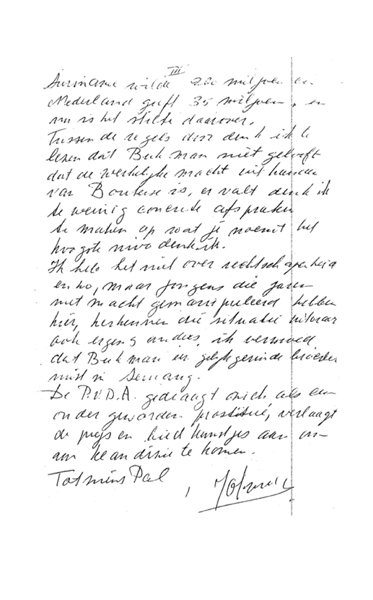 III
Suriname wilde 200 miljoen en
Nederland geeft 35 miljoen, en
nu is het stilte daarover.
Tussen de regels door denk ik te
lezen dat Buk man niet gelooft
dat de werkelijke macht uit handen
van Bouterse is, er valt denk ik
te weinig concrete afspraken
te maken op wat je noemt het
hoogste nivo denk ik.
Ik heb het niet over rechtschapenheid
en zo, maar jongens die jaren
met macht gemanipuleerd hebben
hier, herkennen die situatie
ook ergens anders, ik vermoed
dat Buk man en
mist in
De P.v.D.A. gedraagt zich als een
ouder geworden prostitué, verlaagt
de prijs en biedt kunstjes aan om
aan klandizie te komen.
Tot ziens Pal